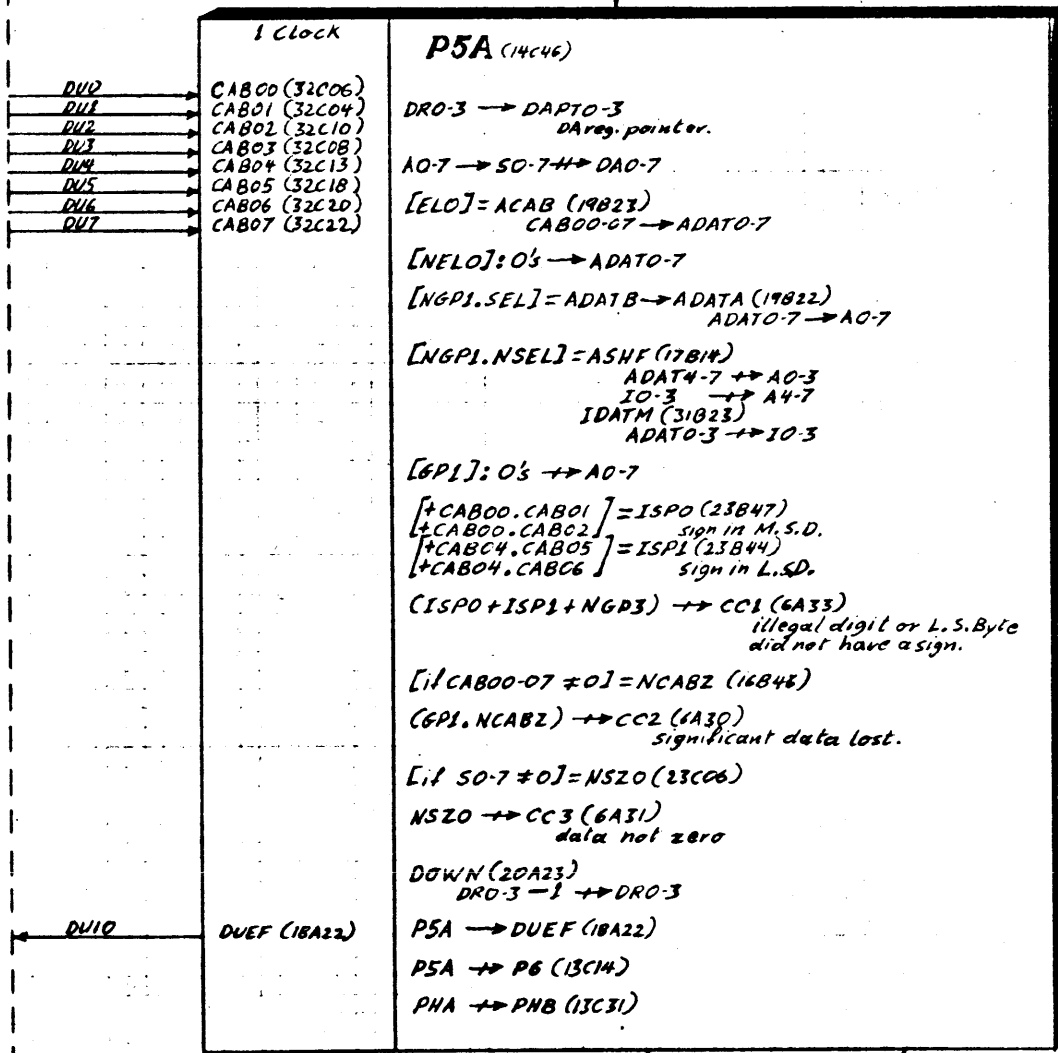 1 Clock
P5A (14C46)
DU0 CAB00 (32C06)
DU1 CAB01 (32C04)
DU2 CAB02 (32C10)
DU3 CAB03 (32C08)
DU4 CAB04 (32C13)
DU5 CAB05 (32C18)
DU6 CAB06 (32C20)
DU7 CAB07 (32C22)
DR0-3 → DAPT0-3
DA reg. pointer.
A0-7 → S0-7 ↛ DA0-7
[EL0] = ACAB (19B23)
CAB00-07 → ADAT0-7
[NEL0]: 0's → ADAT0-7
[NGP1.SEL] = ADATB → ADATA (19B22)
ADAT0-7 → A0-7
[NGP1.NSEL] = ASHF (17B14)
ADAT4-7 ↛ A0-3
I0-3 ↛ A4-7
IDATM (31B23)
ADAT0-3 ↛ I0-3
[GP1]: 0's ↛ A0-7
[+CAB00.CAB01
+CAB00.CAB02] = ISP0 (23B47)
sign in M.S.D.
[+CAB04.CAB05
+CAB04.CAB06] = ISP1 (23B44)
sign in L.S.D.
(ISP0 + ISP1 + NGP3) ↛ CC1 (6A33)
illegal digit or L.S.Byte
did not have a sign.
[if CAB00-07 ≠ 0] = NCABZ (16B48)
(GP1.NCABZ) ↛ CC2 (6A30)
significant data lost.
[if S0-7 ≠ 0] = NSZ0 (23C06)
NSZ0 ↛ CC3 (6A31)
data not zero
DOWN (20A23)
DR0-3 - 1 ↛ DR0-3
DU10 DUEF (18A22) P5A → DUEF (18A22)
P5A ↛ P6 (13C14)
PHA ↛ PHB (13C31)